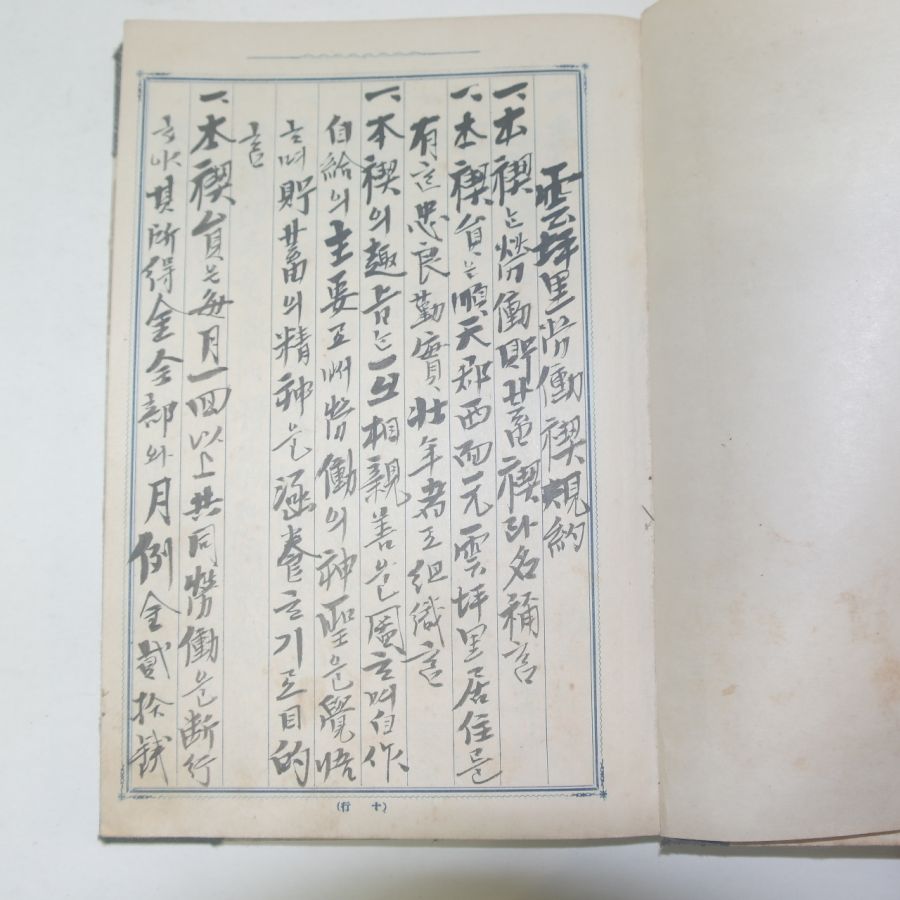 雲坪里労働禊規約
一、本禊는労働貯蓄禊라名稱홈
一、本禊員은順天郡西面一元雲坪里居住를
有한忠良勤實、壯年者로組織홈
一、本禊의趣旨는一으로相親善을圖하며自作
自給의主要로써労働의神聖을覺悟
하며貯蓄의精神을涵養하기로目的
홈
一、本禊員은每月一回以上共同労働을断行
하야其所得金全部와月例金貳拾錢
(十行)